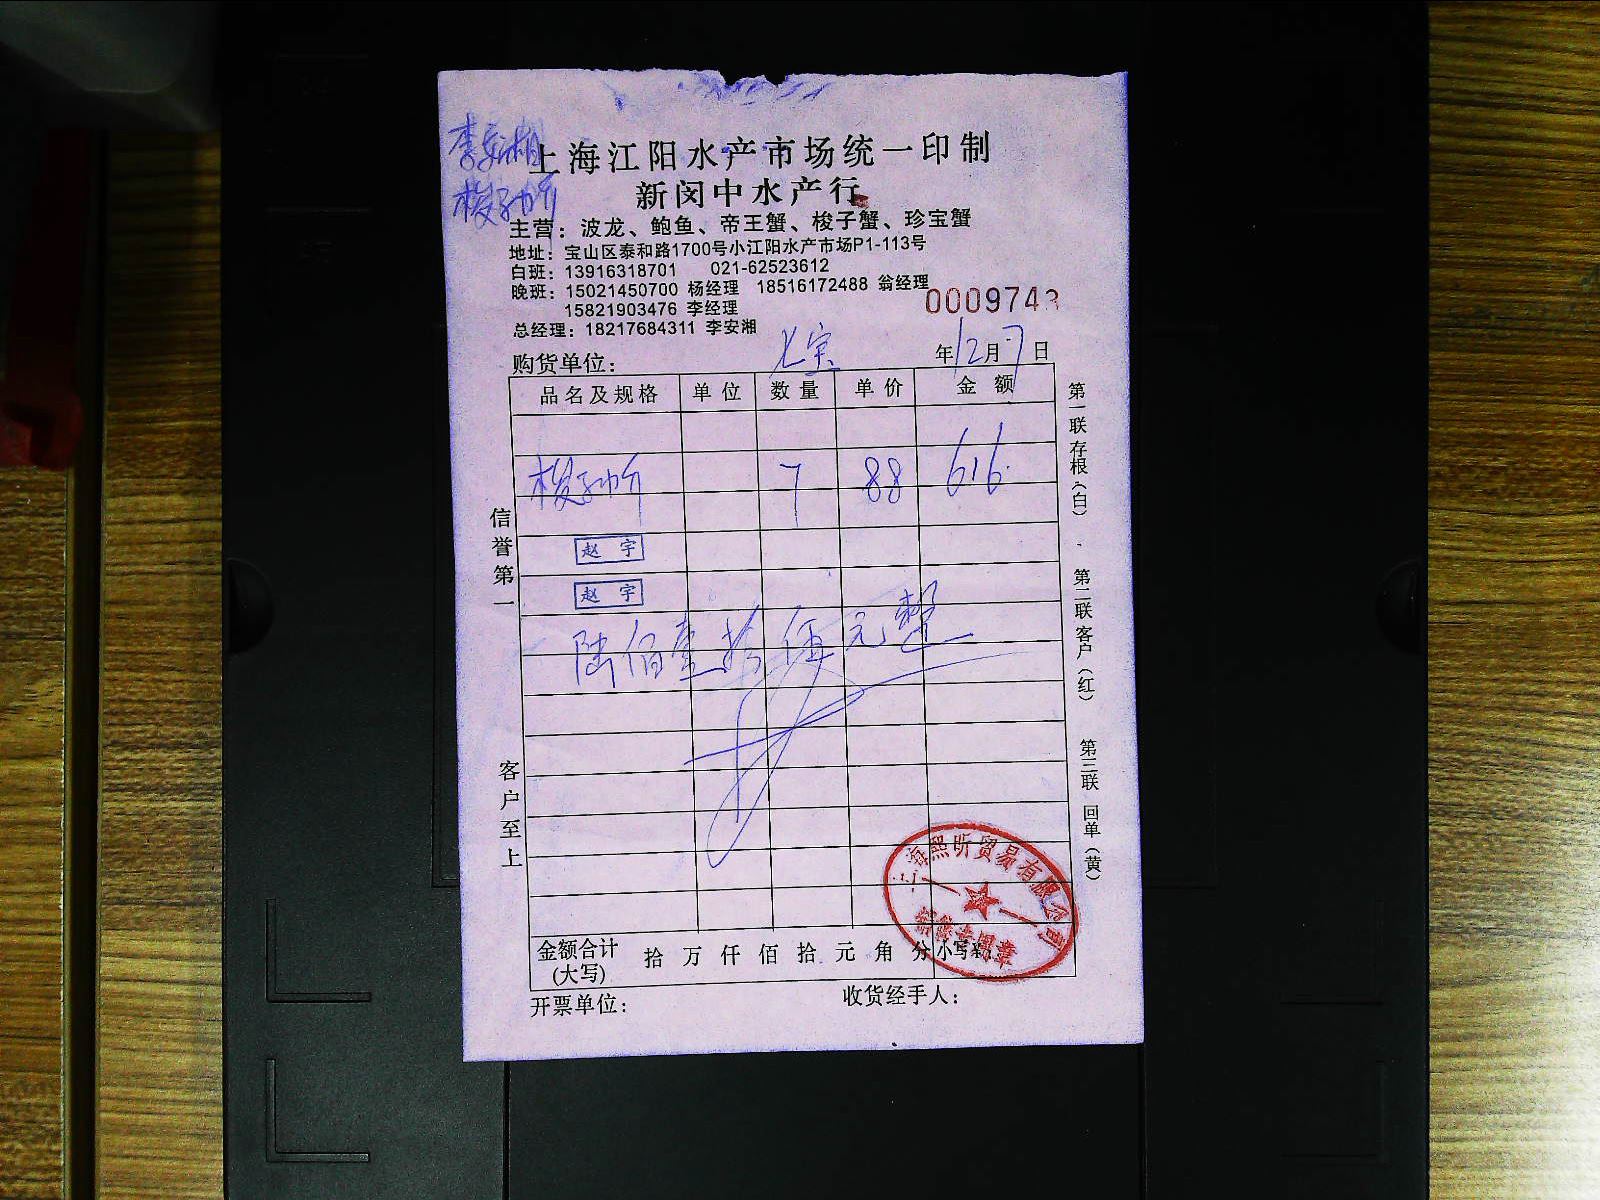 李安湘
梭子蚧
上海江阳水产市场统一印制
新闵中水产行
主营：波龙、鲍鱼、帝王蟹、梭子蟹、珍宝蟹
地址：宝山区泰和路1700号小江阳水产市场P1-113号
白班：13916318701 021-62523612
晚班：15021450700 杨经理 18516172488 翁经理
15821903476 李经理
0009743
总经理：18217684311 李安湘
购货单位：七宝 年12月7日
品名及规格 单位 数量 单价 金额
梭子蚧 7 88 616
赵宇
赵宇
陆佰壹拾陆元整
金额合计(大写) 拾 万 仟 佰 拾 元 角 分 小写
开票单位： 收货经手人：
信誉第一
客户至上
第一联存根（白）
第二联客户（红）
第三联回单（黄）
上海熙昕贸易有限公司
专用章